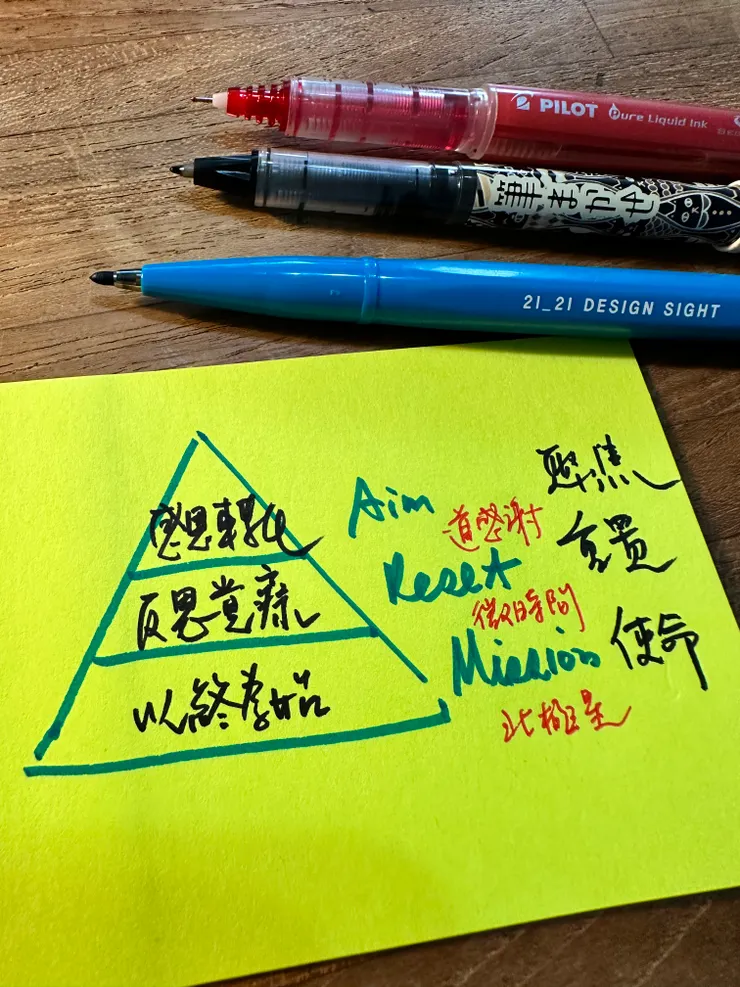 PILOT Pure Liquid Ink
筆まかせ
21_21 DESIGN SIGHT
感恩轉化
Aim
聚焦
道感謝
反思覺
Reset
重置
微時間
以終為始
Mission
使命
北極星